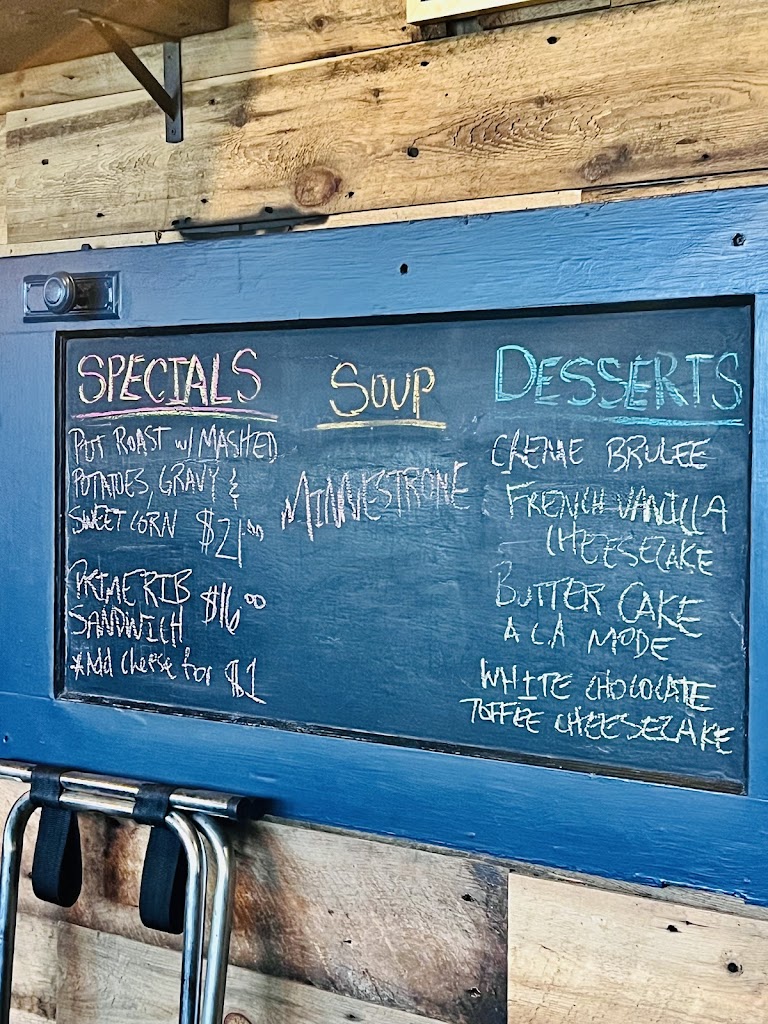 SPECIALS
POT ROAST w/ MASHED
POTATOES, GRAVY &
SWEET CORN $21.00
PRIME RIB
SANDWICH $16.00
*Add cheese for $1
SOUP
MINNESTRONE
DESSERTS
CREME BRULEE
FRENCH VANILLA
CHEESECAKE
BUTTER CAKE
A LA MODE
WHITE CHOCOLATE
TOFFEE CHEESECAKE